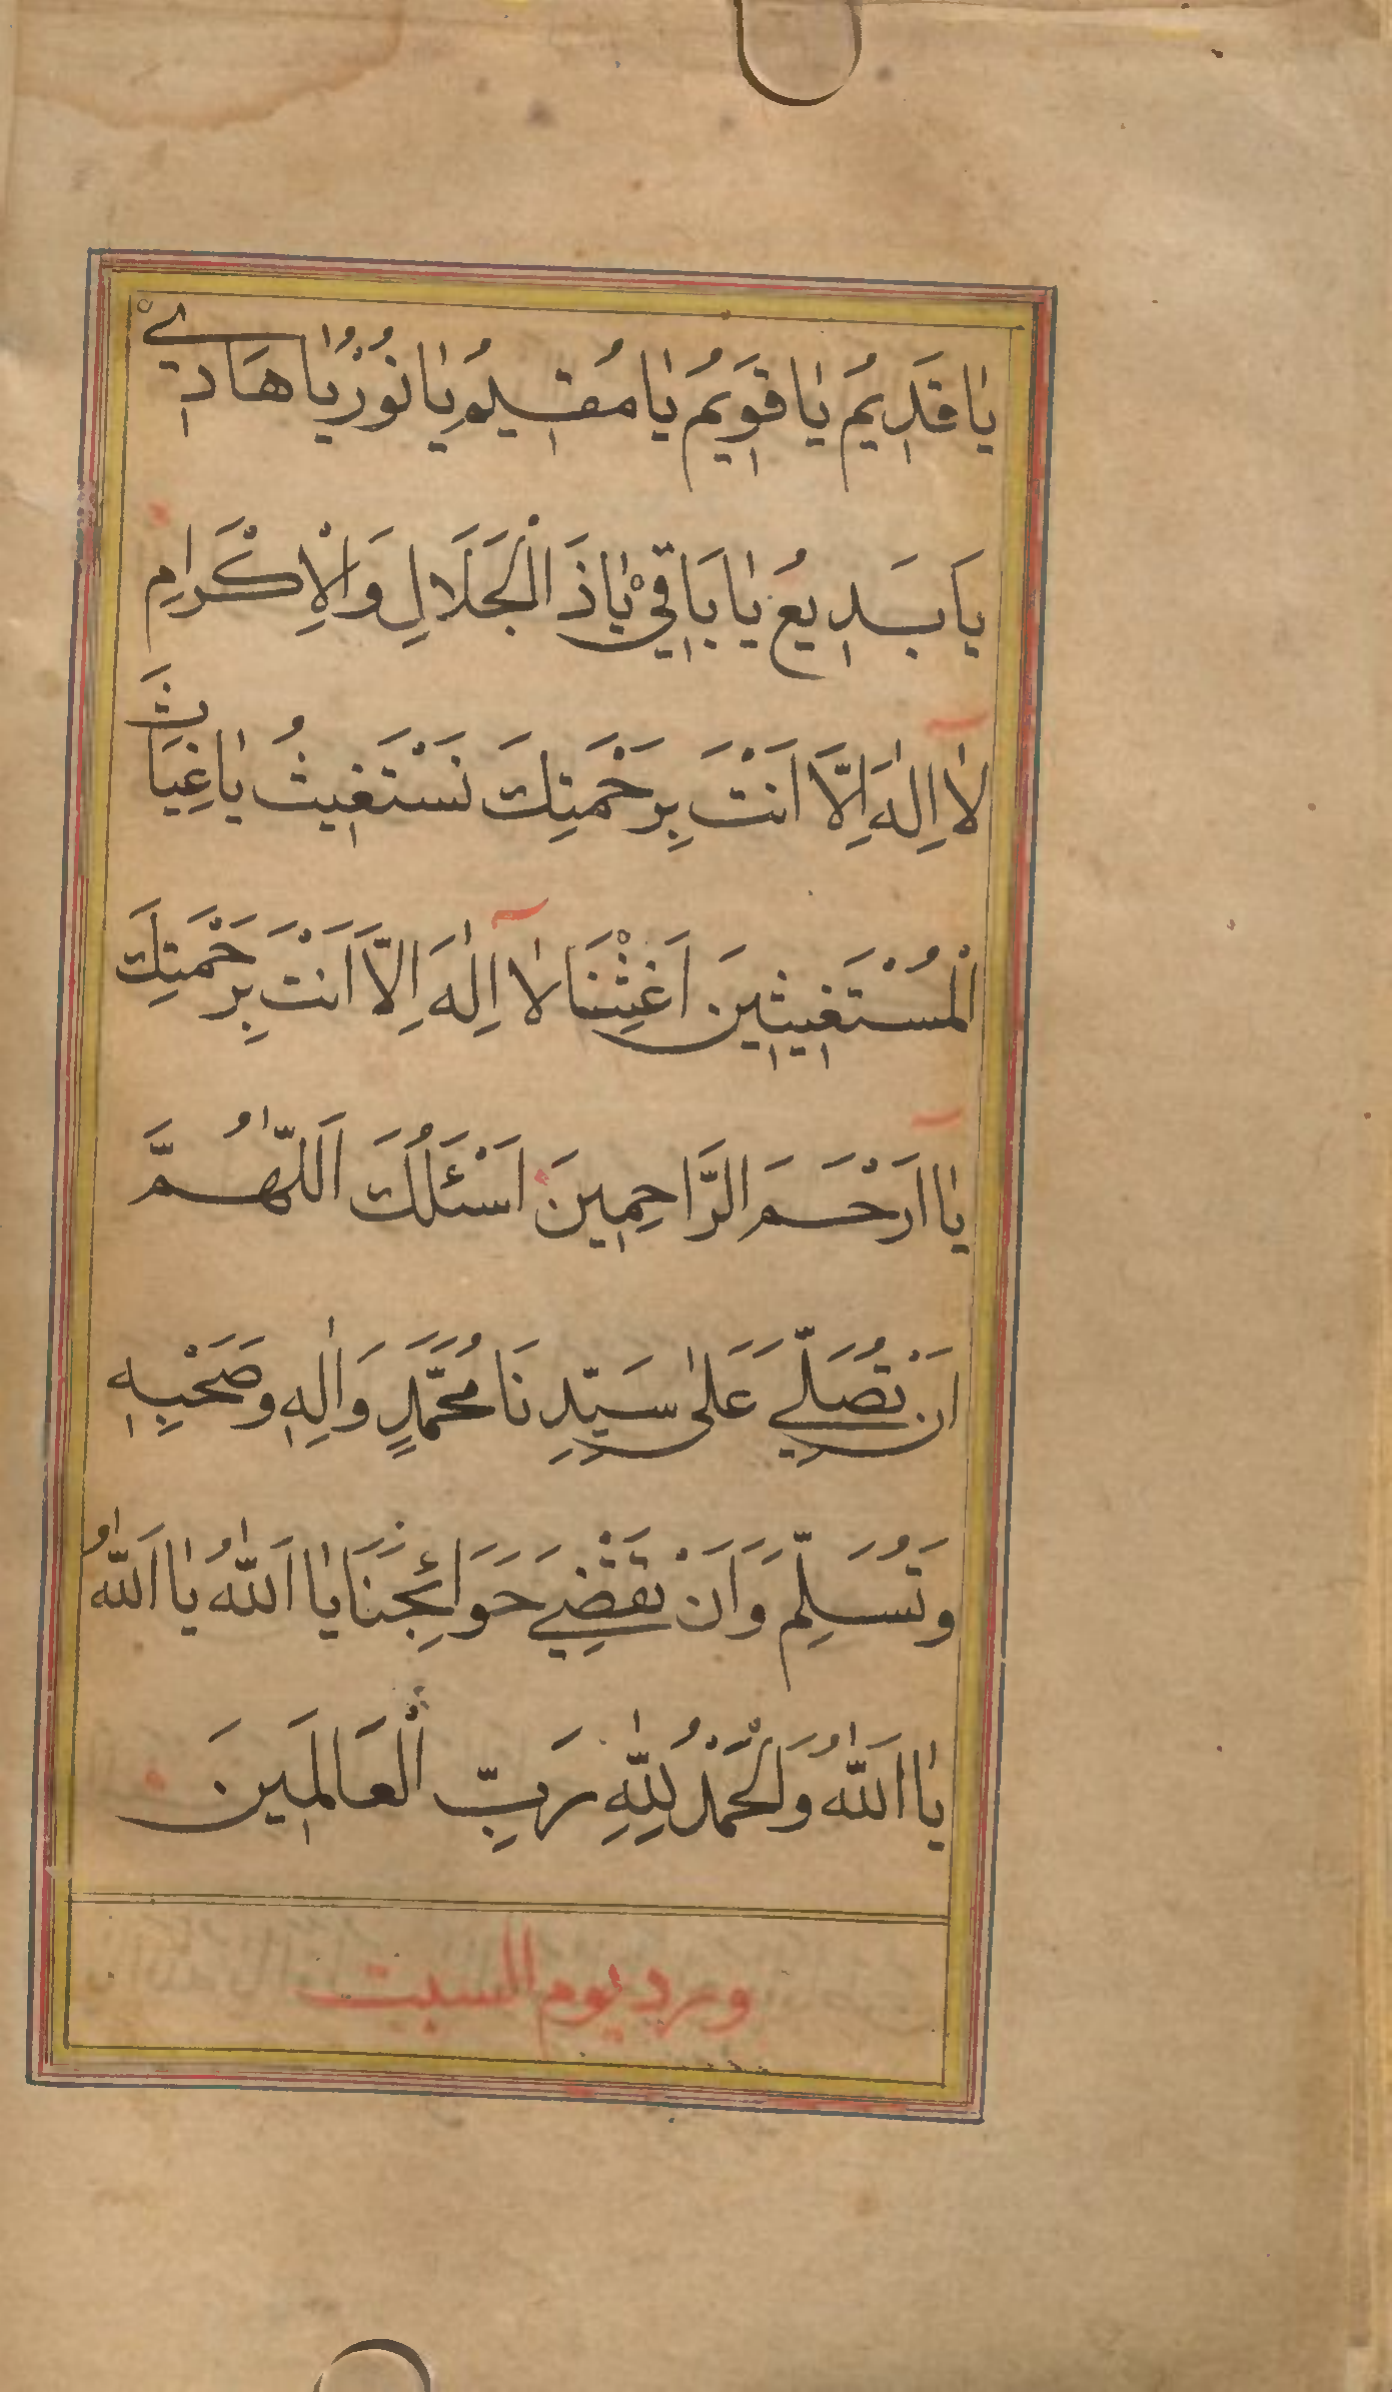 يَا قَدِيمُ يَا قَوِيمُ يَا مُقِيمُ يَا نُورُ يَا هَادِيْ
يَا بَدِيعُ يَا بَاقِيْ يَا ذَا الْجَلَالِ وَالْاِكْرَامِ
لَا اِلٰهَ اِلَّا اَنْتَ بِرَحْمَتِكَ نَسْتَغِيثُ يَا غِيَاثَ
الْمُسْتَغِيثِينَ اَغِثْنَا لَا اِلٰهَ اِلَّا اَنْتَ بِرَحْمَتِكَ
يَا اَرْحَمَ الرَّاحِمِينَ اَسْئَلُكَ اَللّٰهُمَّ
اَنْ تُصَلِّيَ عَلٰى سَيِّدِنَا مُحَمَّدٍ وَاٰلِهٖ وَصَحْبِهٖ
وَتُسَلِّمَ وَاَنْ تَقْضِيَ حَوَائِجَنَا يَا اَللّٰهُ يَا اَللّٰهُ
يَا اَللّٰهُ وَالْحَمْدُ لِلّٰهِ رَبِّ الْعَالَمِينَ
ورد يوم السبت